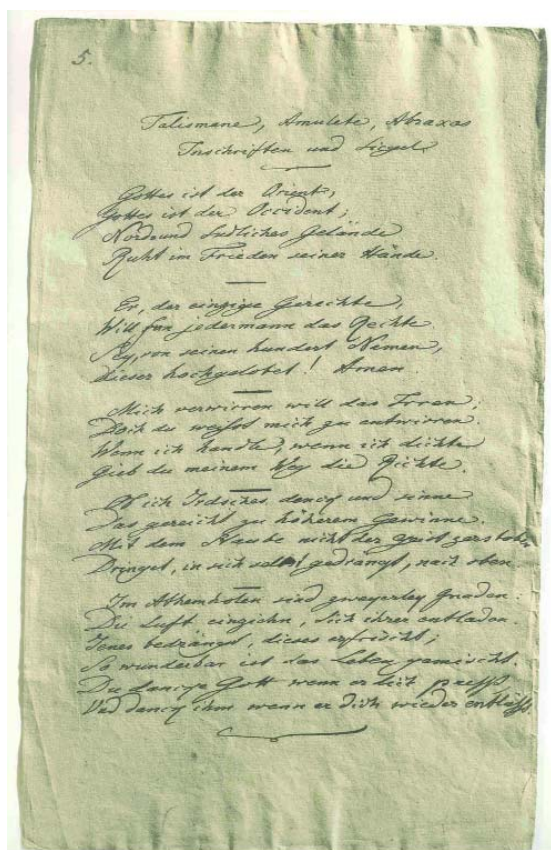 5.
Talismane, Amulete, Abraxas
Inschriften und Siegel
Gottes ist der Orient,
Gottes ist der Occident;
Nord und Südliches Gelände
Ruht im Frieden seiner Hände.
Er, der einzige Gerechte,
Will für jedermann das Rechte
Sey, von seinen hundert Namen,
Dieser hochgelobet! Amen.
Mich verwirren will das Irren;
Doch du weisst mich zu entwirren.
Wenn ich handle, wenn ich dichte
Gieb du meinem Weg die Richte.
Ob ich Irdsches denck und sinne
Das gereicht zu höherem Gewinne.
Mit dem Staube nicht der Geist zerstoben
Dringet, in sich selbst gedrängt, nach oben.
Im Athemholen sind zweyerley Gnaden:
Die Luft einziehn, sich ihrer entladen.
Jenes bedrängt, dieses erfrischt;
So wunderbar ist das Leben gemischt.
Du dancke Gott wenn er dich presst
Und danck ihm wenn er dich wieder entläßt.